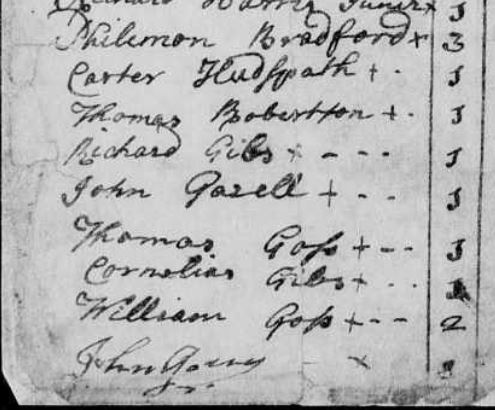 Richard Harris Junr x 1
Philemon Bradford x 3
Carter Hudspath + - 1
Thomas Robertson + - 1
Richard Gibs + - - - 1
John Gazell + - - 1
Thomas Goss + - - 1
Cornelias Gibs + - - 1
William Goss + - - 2
John x